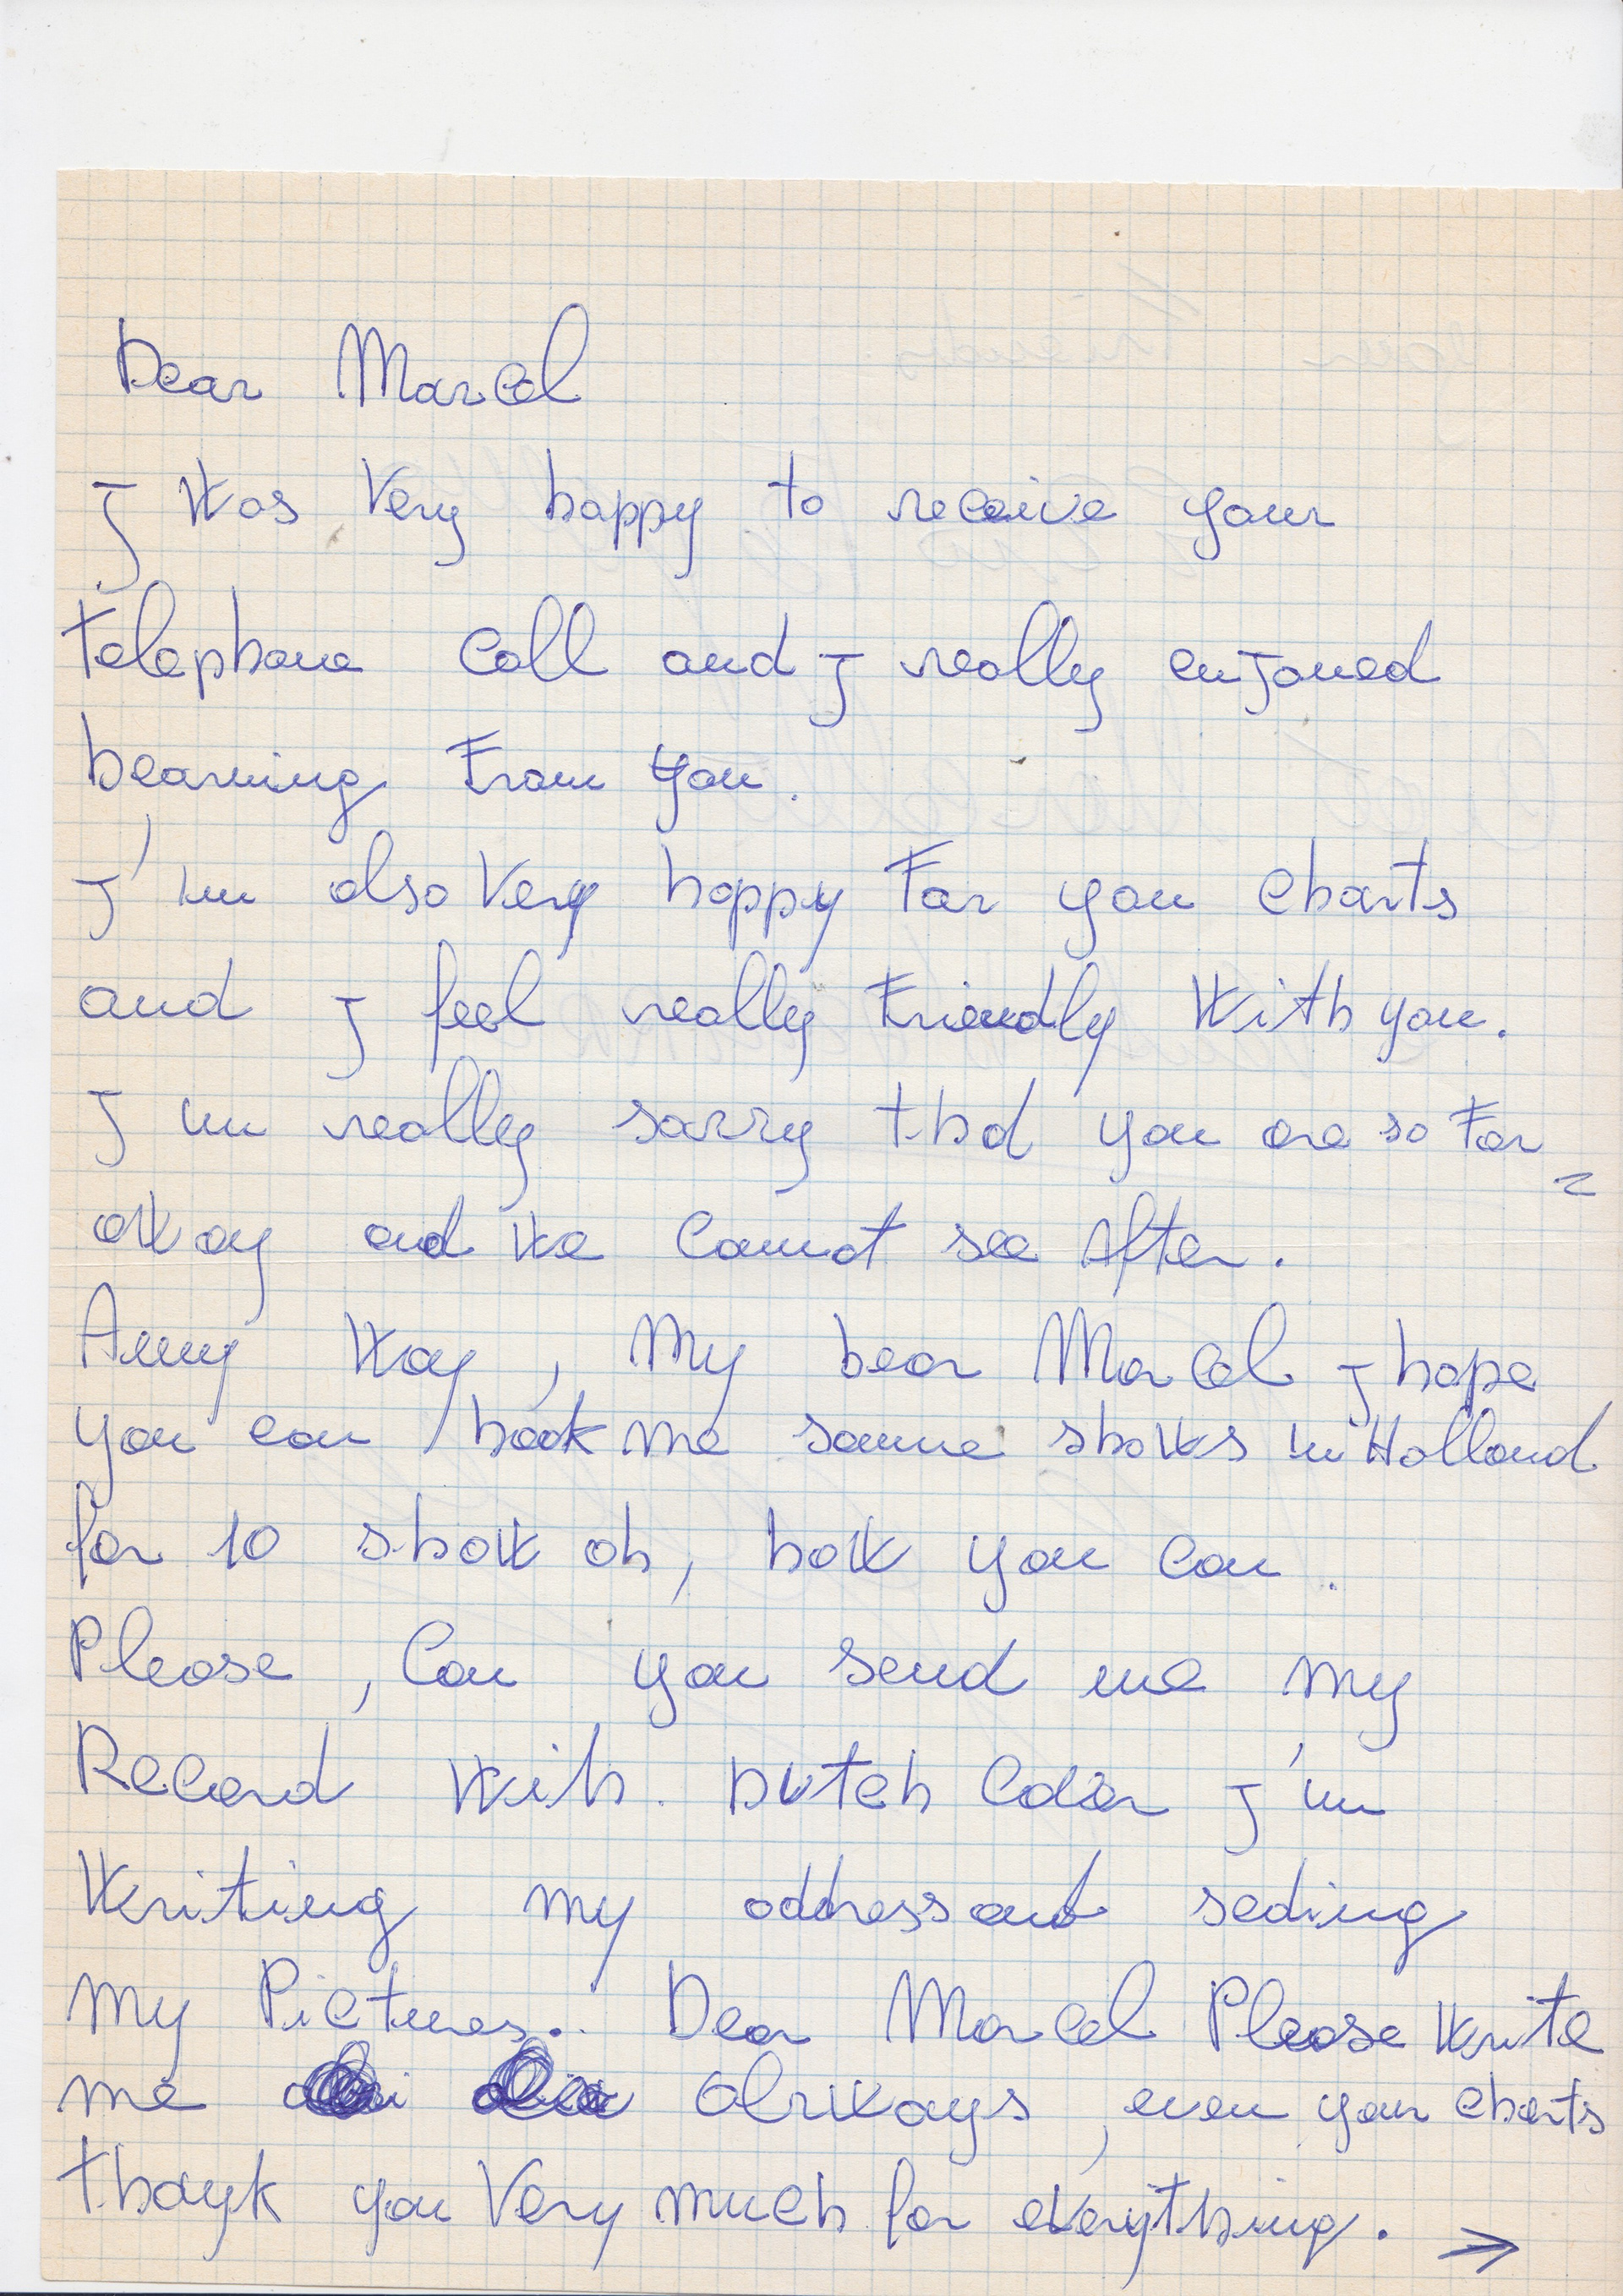 Dear Marcel
J was very happy to receive your
telephone call and J really enjoued
hearning From you.
J'm also Very happy For you charts
and J feel really Friendly With you.
J m really sorry thad you are so Far
away and we cannot see After.
Anny way, My Dear Marcel J hope
you can book me some shows in Holland
for 10 show oh, how you can.
Please, Can you send me my
Record with. Dutch Color J'm
Writing my address and seding
my Pictures.. Dear Marcel Please write
me always, even your charts
thank you Very much for everything. →